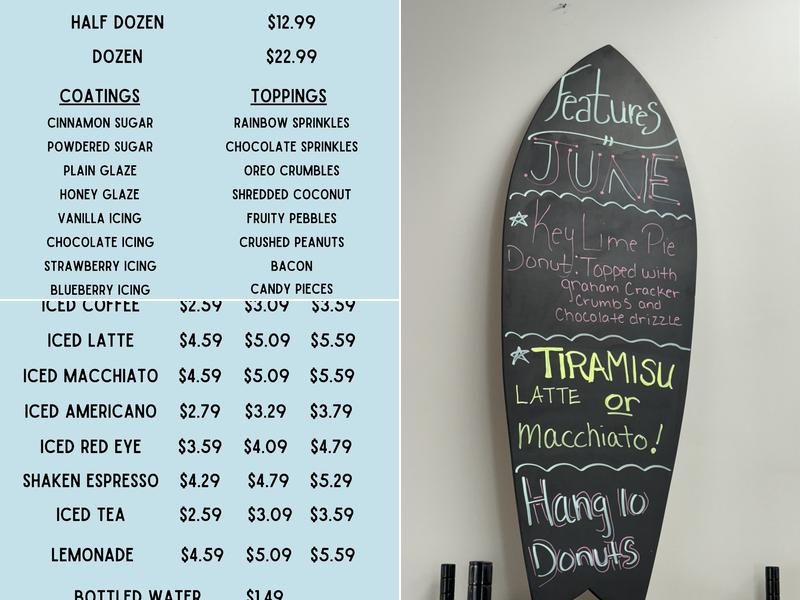 HALF DOZEN $12.99
DOZEN $22.99
COATINGS TOPPINGS
CINNAMON SUGAR RAINBOW SPRINKLES
POWDERED SUGAR CHOCOLATE SPRINKLES
PLAIN GLAZE OREO CRUMBLES
HONEY GLAZE SHREDDED COCONUT
VANILLA ICING FRUITY PEBBLES
CHOCOLATE ICING CRUSHED PEANUTS
STRAWBERRY ICING BACON
BLUEBERRY ICING CANDY PIECES
ICED COFFEE $2.59 $3.09 $3.59
ICED LATTE $4.59 $5.09 $5.59
ICED MACCHIATO $4.59 $5.09 $5.59
ICED AMERICANO $2.79 $3.29 $3.79
ICED RED EYE $3.59 $4.09 $4.79
SHAKEN ESPRESSO $4.29 $4.79 $5.29
ICED TEA $2.59 $3.09 $3.59
LEMONADE $4.59 $5.09 $5.59
BOTTLED WATER $1.49
Features
JUNE
Key Lime Pie
Donut: Topped with
graham Cracker
Crumbs and
Chocolate drizzle
TIRAMISU
LATTE or
Macchiato!
Hang 10
Donuts